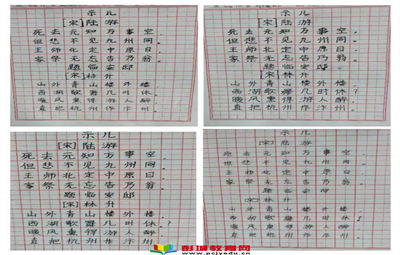 示儿
[宋]陆游
死去元知万事空
但悲不见九州同
王师北定中原日
家祭无忘告乃翁
题临安邸
[宋]林升
山外青山楼外楼
西湖歌舞几时休
暖风熏得游人醉
直把杭州作汴州
示儿
[宋]陆游
死去元知万事空
但悲不见九州同
王师北定中原日
家祭无忘告乃翁
题临安邸
[宋]林升
山外青山楼外楼
西湖歌舞几时休
暖风熏得游人醉
直把杭州作汴州
示儿
[宋]陆游
死去元知万事空
但悲不见九州同
王师北定中原日
家祭无忘告乃翁
题临安邸
[宋]林升
山外青山楼外楼
西湖歌舞几时休
暖风熏得游人醉
直把杭州作汴州
示儿
[宋]陆游
死去元知万事空
但悲不见九州同
王师北定中原日
家祭无忘告乃翁
题临安邸
[宋]林升
山外青山楼外楼
西湖歌舞几时休
暖风熏得游人醉
直把杭州作汴州
彭城教育网
www.pcjyedu.cn